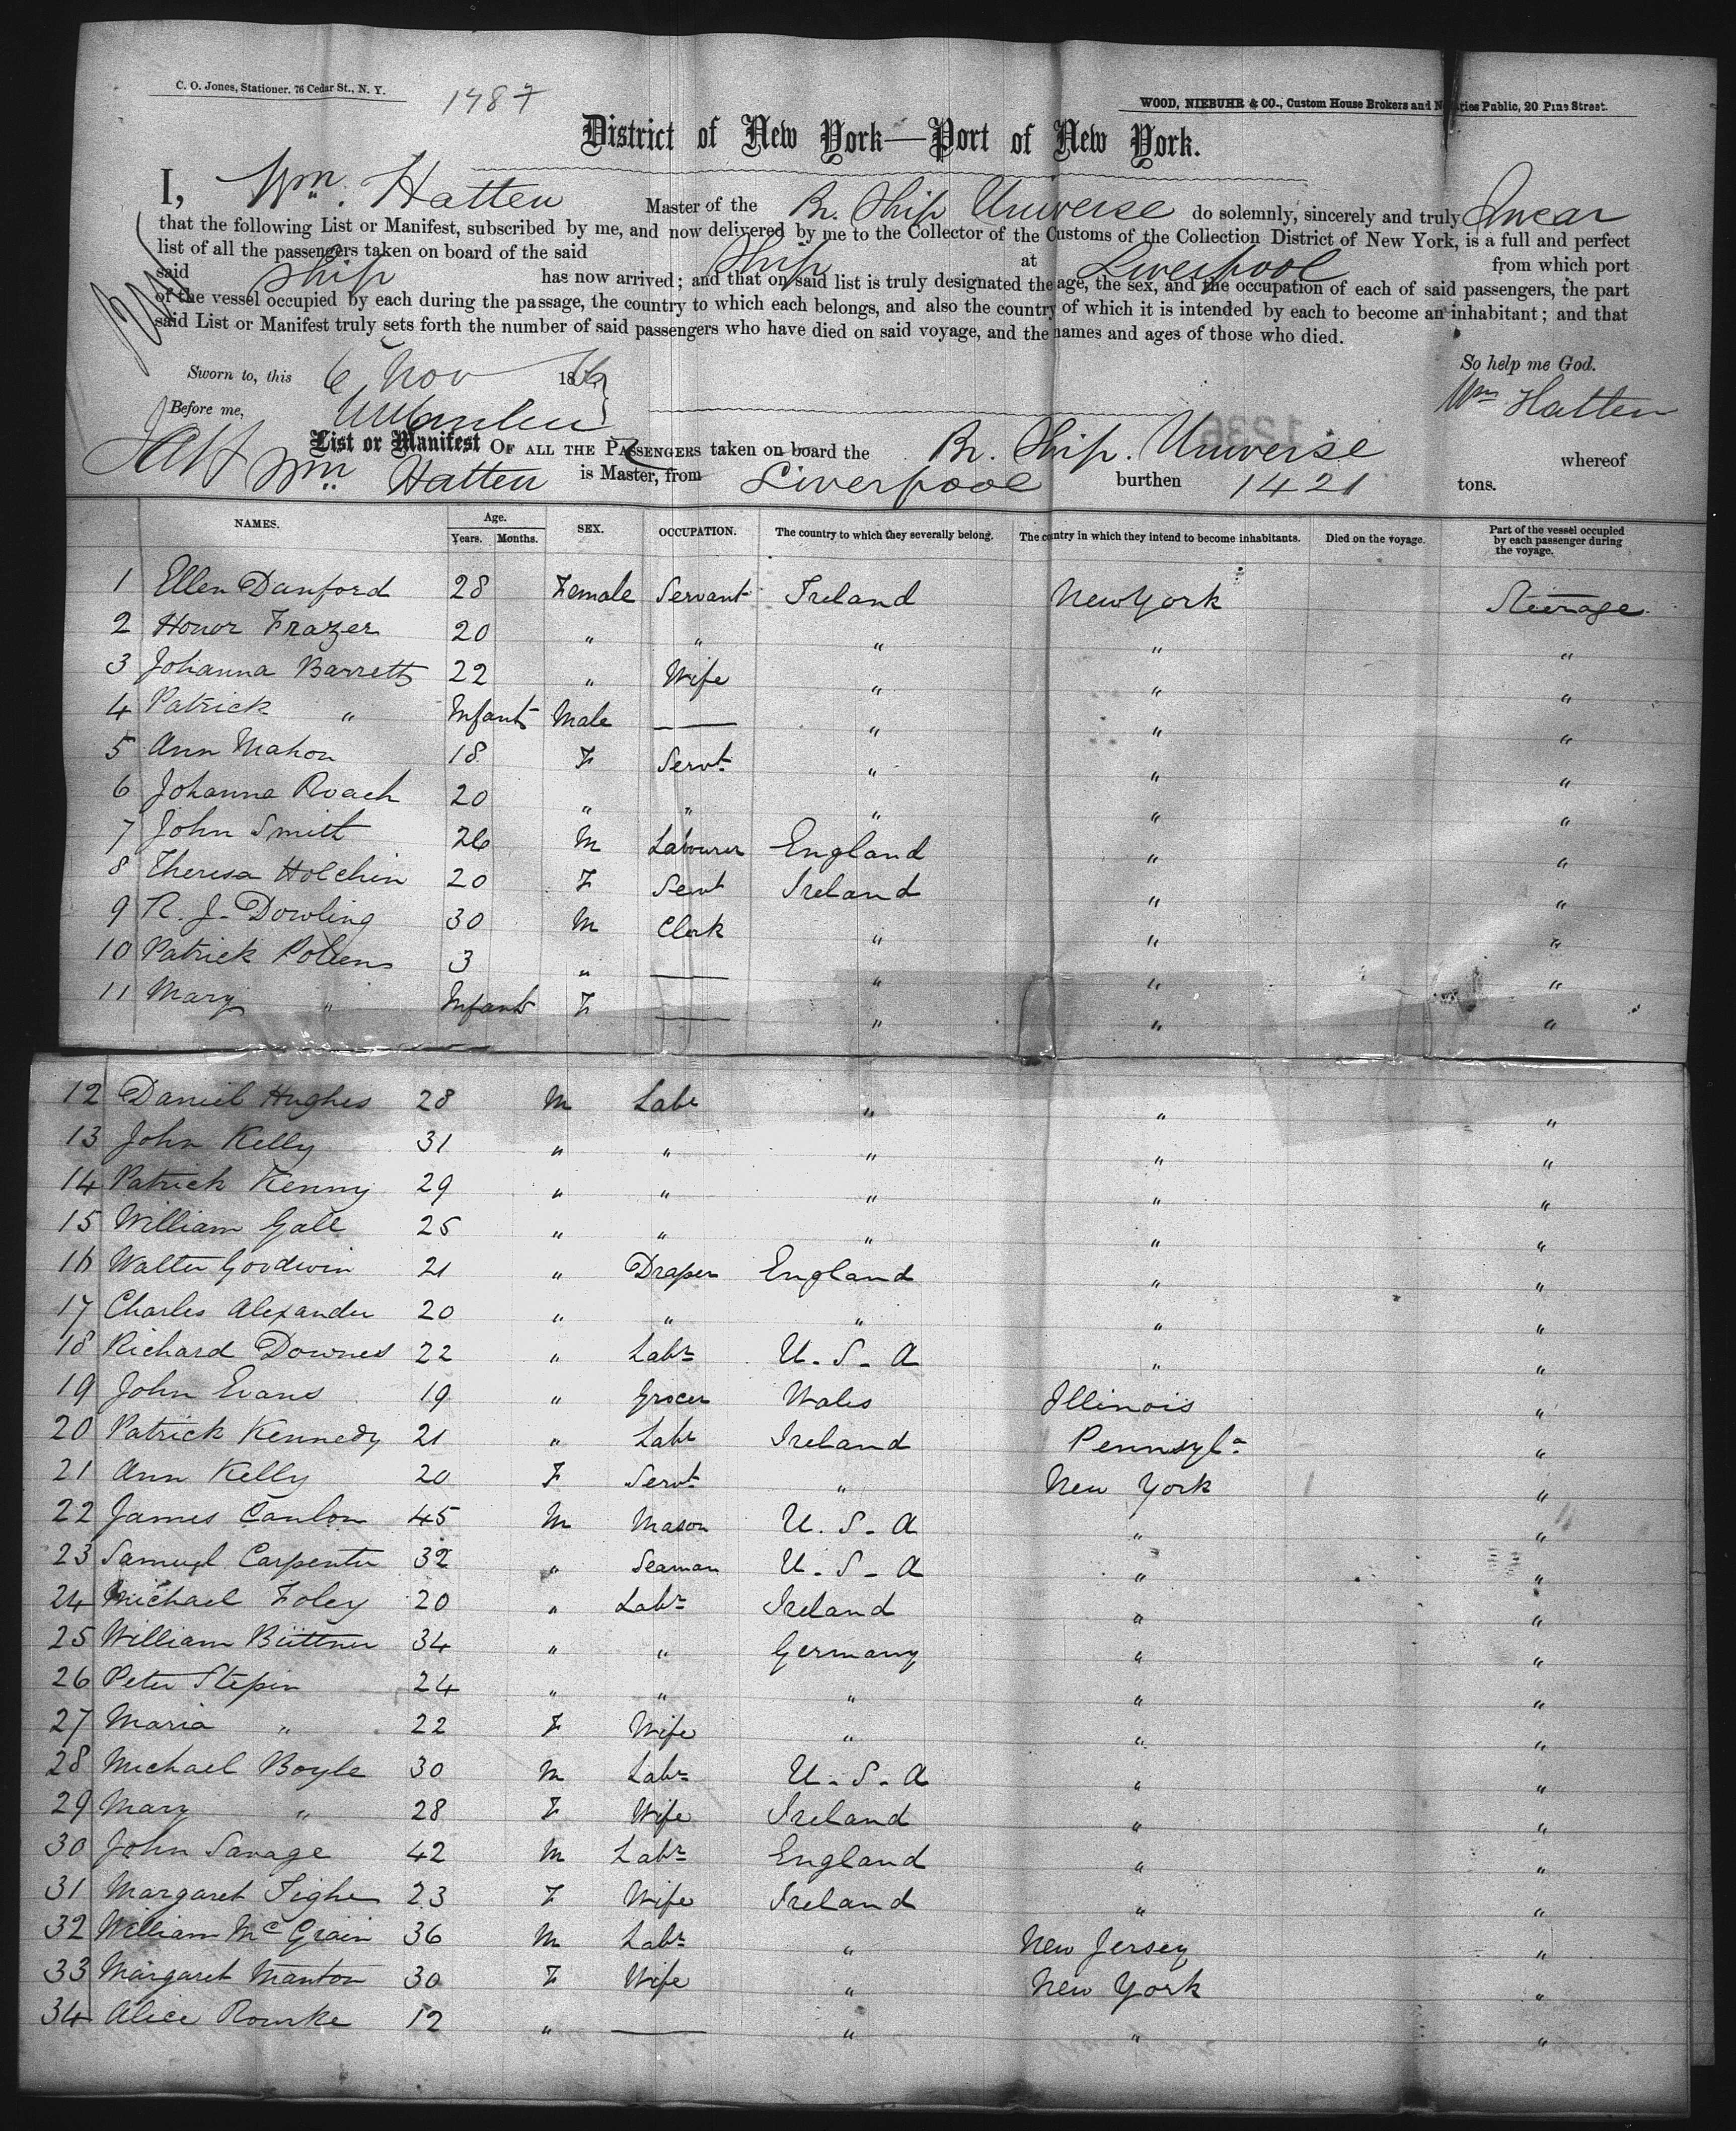 C. O. Jones, Stationer, 76 Cedar St., N. Y.
1487
WOOD, NIEBUHR & CO., Custom House Brokers and Notaries Public, 20 Pine Street.
District of New York—Port of New York.
I, Wm. Hatten Master of the Br. Ship Universe do solemnly, sincerely and truly Swear
that the following List or Manifest, subscribed by me, and now delivered by me to the Collector of the Customs of the Collection District of New York, is a full and perfect
list of all the passengers taken on board of the said Ship at Liverpool from which port
said Ship has now arrived; and that on said list is truly designated the age, the sex, and the occupation of each of said passengers, the part
of the vessel occupied by each during the passage, the country to which each belongs, and also the country of which it is intended by each to become an inhabitant; and that
said List or Manifest truly sets forth the number of said passengers who have died on said voyage, and the names and ages of those who died.
So help me God.
Sworn to, this 6 Nov 18
Wm Hatten
Before me,
1236
List or Manifest OF ALL THE PASSENGERS taken on board the Br. Ship. Universe whereof
Wm. Hatten is Master, from Liverpool burthen 1421 tons.
NAMES. Age. Years. Months. SEX. OCCUPATION. The country to which they severally belong. The country in which they intend to become inhabitants. Died on the voyage. Part of the vessel occupied by each passenger during the voyage.
1 Ellen Danford 28 Female Servant Ireland New York Steerage
2 Honor Frazer 20 " " " " "
3 Johanna Barrett 22 " Wife " " "
4 Patrick " Infant Male — " " "
5 Ann Mahon 18 F Servt. " " "
6 Johanna Roach 20 " " " " "
7 John Smith 26 M Labourer England " "
8 Theresa Holchin 20 F Servt Ireland " "
9 R. J. Dowling 30 M Clerk " " "
10 Patrick 3 " — " " "
11 Mary " Infant F — " " "
12 Daniel Hughes 28 M Labr " " "
13 John Kelly 31 " " " " "
14 Patrick Kenny 29 " " " " "
15 William Gall 25 " " " " "
16 Walter Goodwin 21 " Draper England " "
17 Charles Alexander 20 " " " " "
18 Richard Downes 22 " Labr U. S. A " "
19 John Evans 19 " Grocer Wales Illinois "
20 Patrick Kennedy 21 " Labr Ireland Pennsyla "
21 Ann Kelly 20 F Servt " New York "
22 James Canlon 45 M Mason U. S. A " "
23 Samuel Carpenter 32 " Seaman U. S. A " "
24 Michael Foley 20 " Labr Ireland " "
25 William Büttner 34 " " Germany " "
26 Peter Stepin 24 " " " " "
27 Maria " 22 F Wife " " "
28 Michael Boyle 30 M Labr U. S. A " "
29 Mary " 28 F Wife Ireland " "
30 John Savage 42 M Labr England " "
31 Margaret Tighe 23 F Wife Ireland " "
32 William McGrain 36 M Labr " New Jersey "
33 Margaret Manton 30 F Wife " New York "
34 Alice Rourke 12 " — " " "